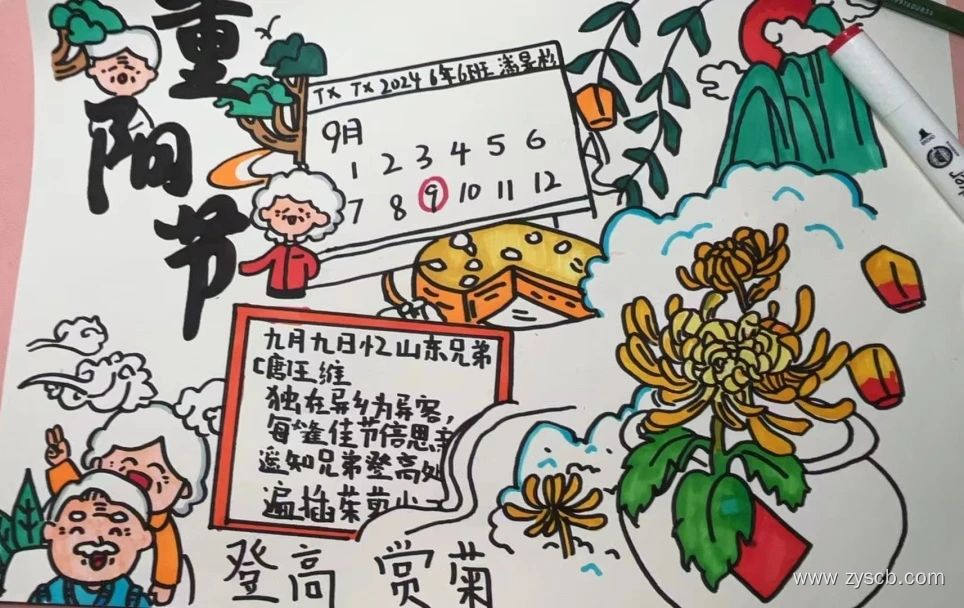 重阳节
TX TX 2024 6年6班 潘昱彬
9月
1 2 3 4 5 6
7 8 9 10 11 12
九月九日忆山东兄弟
[唐]王维
独在异乡为异客，
每逢佳节倍思亲
遥知兄弟登高处
遍插茱萸少一
登高 赏菊
www.zyscb.com